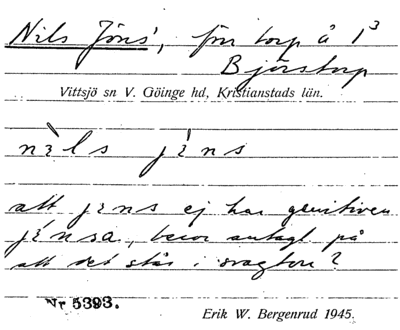 Nils Jöns', förr torp å 1³
Bjärstorp
Vittsjö sn V. Göinge hd, Kristianstads län.
nìls jèns
att jens ej har genitiven
jénsa, beror antagl på
att det står i svagton?
Nr 5393.
Erik W. Bergenrud 1945.